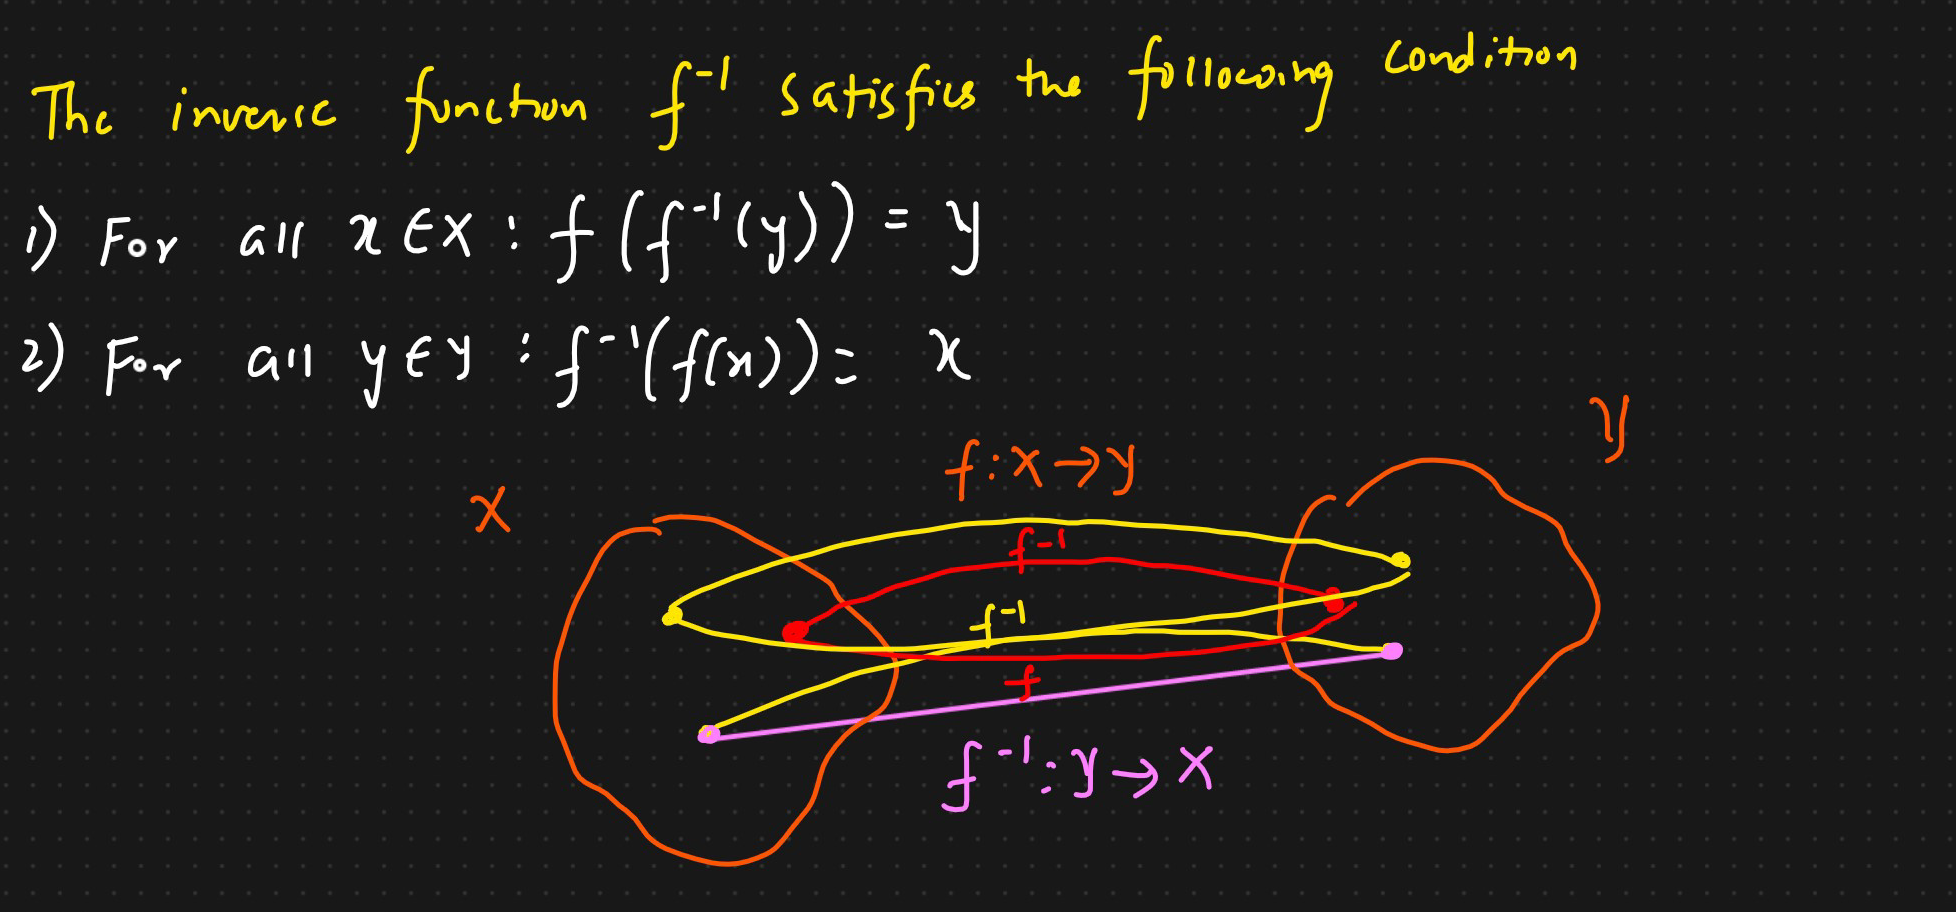 The inverse function f⁻¹ satisfies the following condition
1) For all x ∈ X : f(f⁻¹(y)) = y
2) For all y ∈ y : f⁻¹(f(x)) = x
y
f : x → y
x
f⁻¹
f⁻¹
f
f⁻¹ : y → x